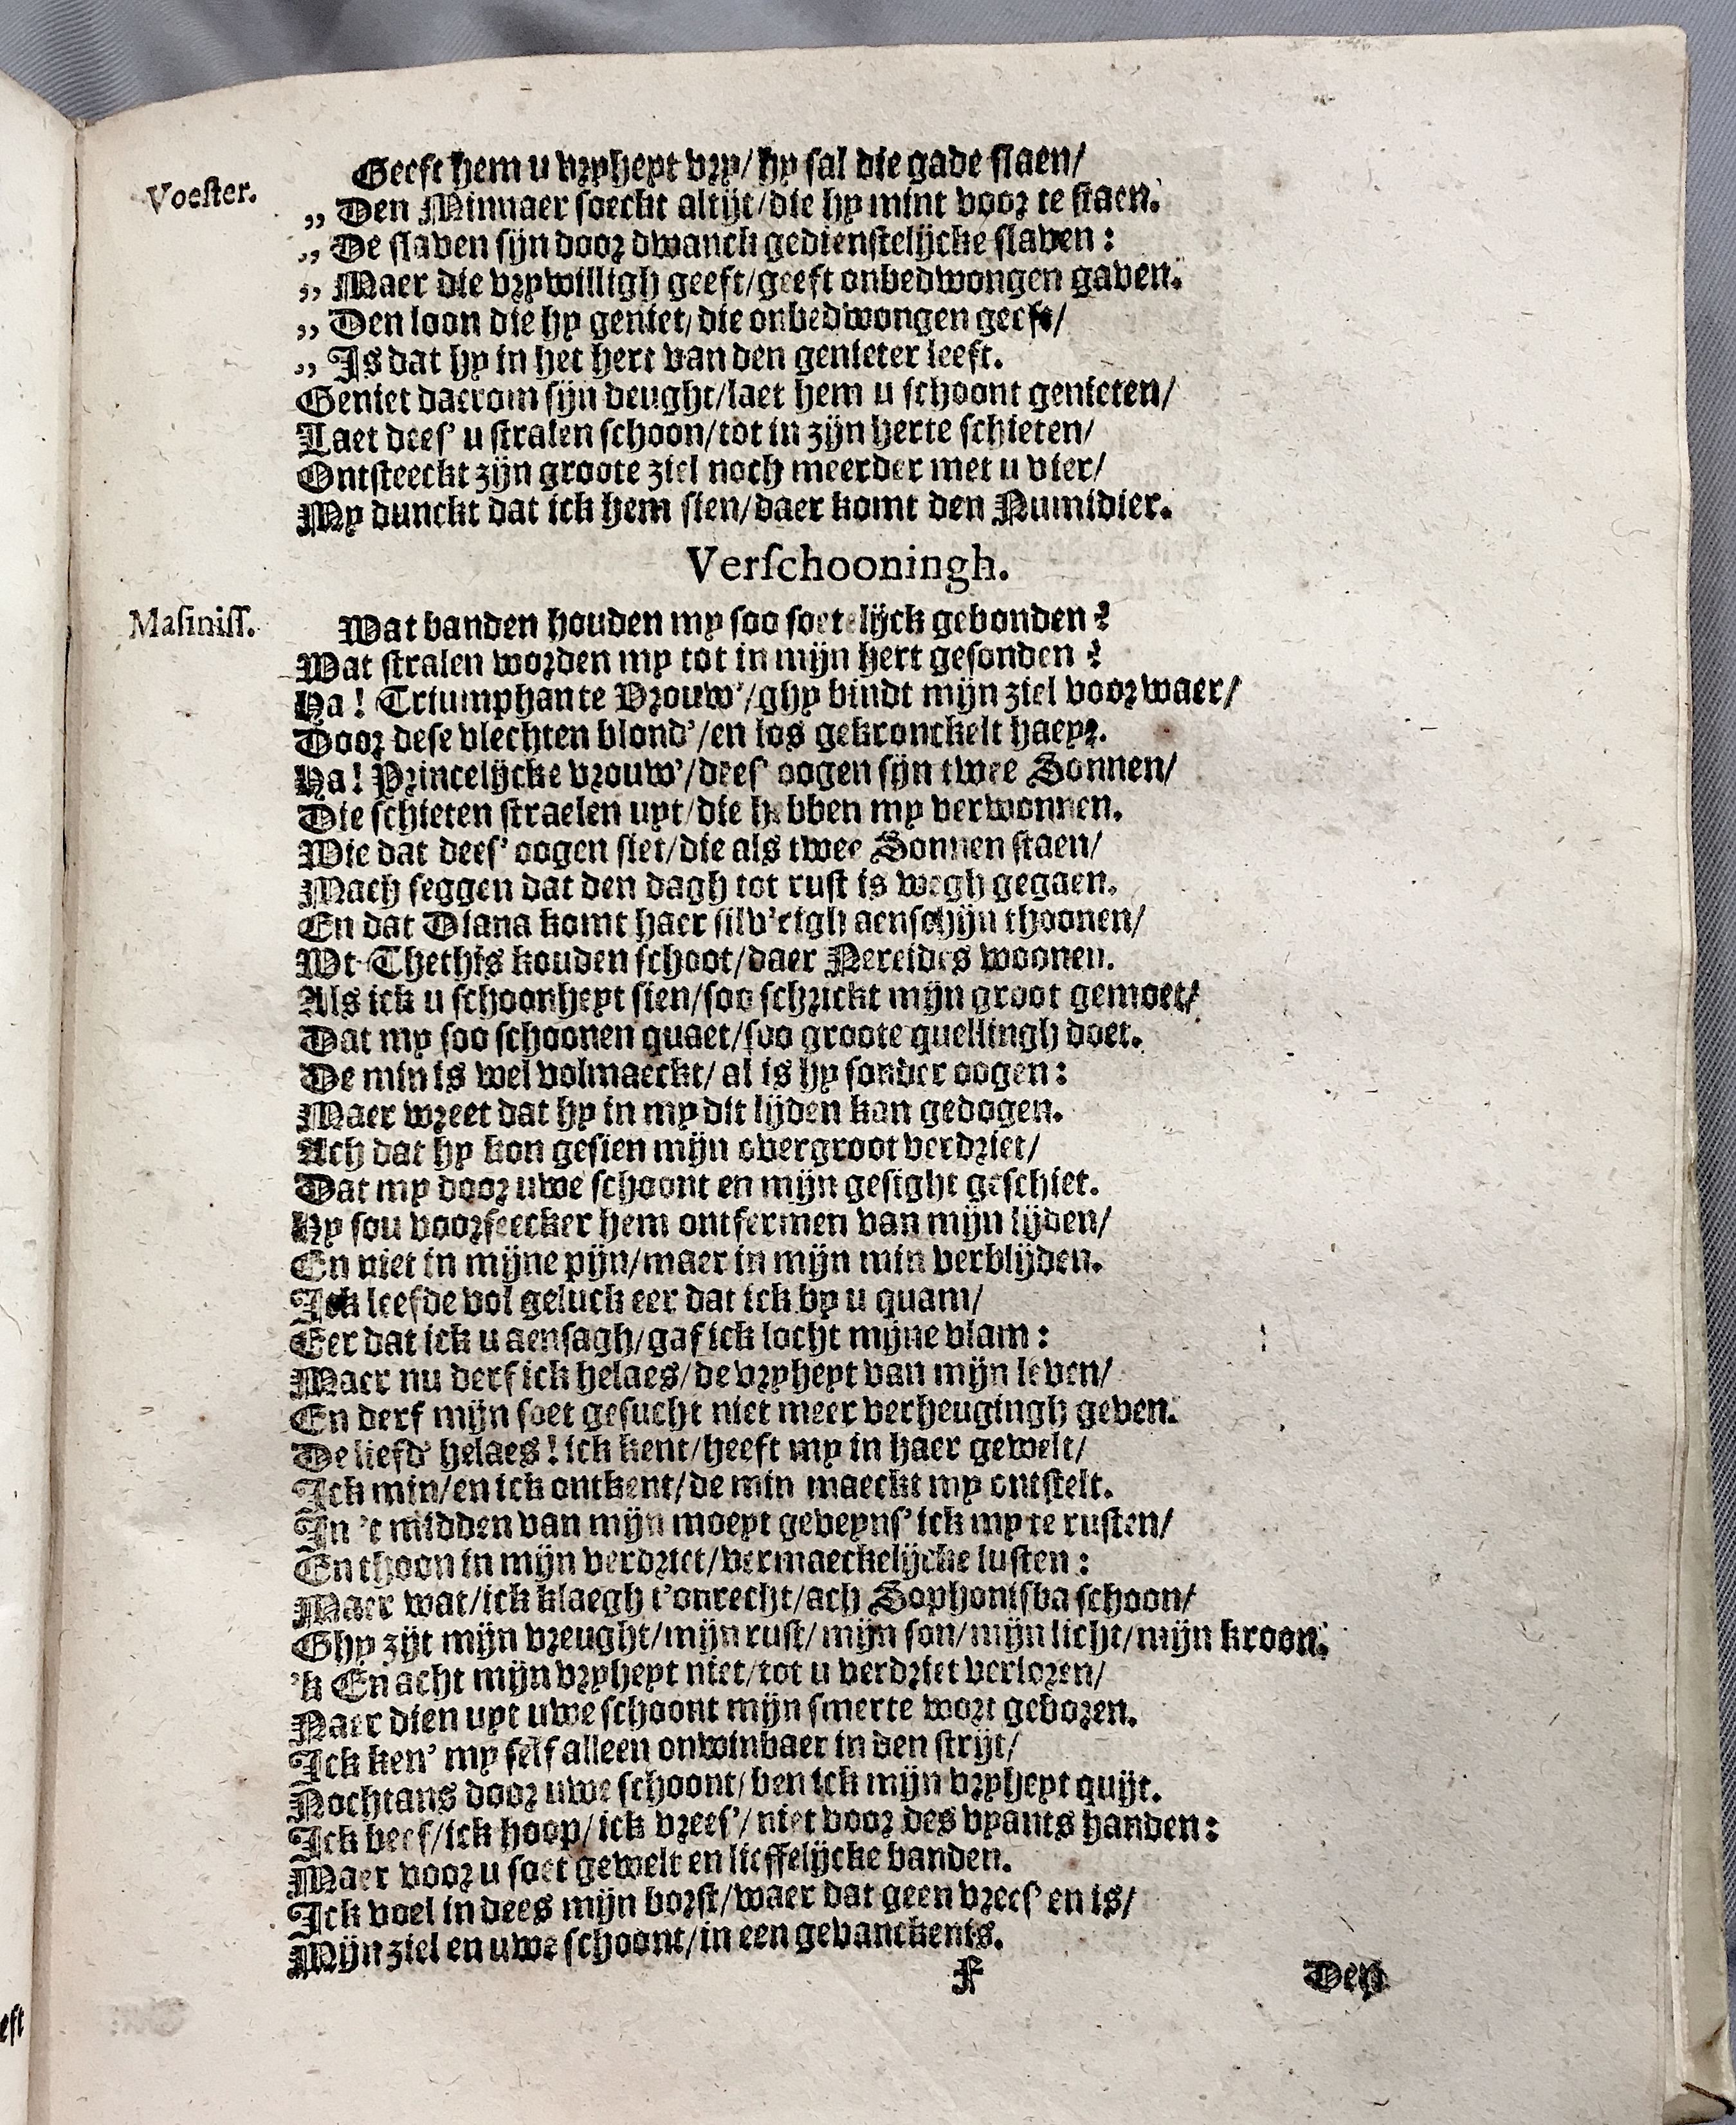 Voester. Geeft hem u vryheyt vry/ hy sal die gade slaen/
„ Den Minnaer soeckt altijt/die hy mint voor te staen.
„ De slaven sijn door dwanck gedienstelijcke slaven:
„ Maer die vrywilligh geeft/geeft onbedwongen gaven.
„ Den loon die hy geniet/die onbedwongen geeft/
„ Is dat hy in het hert van den genieter leeft.
Geniet daerom sijn deught/laet hem u schoont genieten/
Laet dees' u stralen schoon/tot in zijn herte schieten/
Ontsteeckt zijn groote ziel noch meerder met u vier/
My dunckt dat ick hem sien/daer komt den Numidier.
Verschooningh.
Masiniss. Wat banden houden my soo soetelijck gebonden?
Wat stralen worden my tot in mijn hert gesonden?
Ha! Triumphante Vrouw'/ghy bindt mijn ziel voorwaer/
Door dese vlechten blond'/en los gekronckelt haeyr.
Ha! Princelijcke vrouw'/dees' oogen sijn twee Sonnen/
Die schieten straelen uyt/die hebben my verwonnen.
Wie dat dees' oogen siet/die als twee Sonnen staen/
Mach seggen dat den dagh tot rust is wegh gegaen.
En dat Diana komt haer silv'righ aenschijn thoonen/
Wt Thethis kouden schoot/daer Nereides woonen.
Als ick u schoonheyt sien/soo schrickt mijn groot gemoet/
Dat my soo schoonen quaet/soo groote quellingh doet.
De min is wel volmaeckt/ al is hy sonder oogen:
Maer wreet dat hy in my dit lijden kan gedogen.
Ach dat hy kon gesien mijn overgroot verdriet/
Dat my door uwe schoont en mijn gesight geschiet.
Hy sou voorseecker hem ontfermen van mijn lijden/
En niet in mijne pijn/maer in mijn min verblijden.
Ick leefde vol geluck eer dat ick by u quam/
Eer dat ick u aensagh/gaf ick locht mijne vlam:
Maer nu derf ick helaes/de vryheyt van mijn leven/
En derf mijn soet gesucht niet meer verheugingh geven.
De liefd' helaes! ick kent/heeft my in haer gewelt/
Ick min/en ick ontkent/de min maeckt my ontstelt.
In 't midden van mijn moeyt geveyns' ick my te rusten/
En thoon in mijn verdriet/vermaeckelijcke lusten:
Maer wat/ick klaegh t'onrecht/ach Sophonisba schoon/
Ghy zijt mijn vreught/mijn rust/mijn son/mijn licht/mijn kroon.
'k En acht mijn vryheyt niet/tot u verdriet verloren/
Naer dien uyt uwe schoont mijn smerte wort geboren.
Ick ken' my self alleen onwinbaer in den strijt/
Nochtans door uwe schoont/ben ick mijn vryheyt quijt.
Ick beef/ick hoop/ick vrees'/niet voor des vyants handen:
Maer voor u soet gewelt en lieffelijcke banden.
Ick voel in dees mijn borst/waer dat geen vrees' en is/
Mijn ziel en uwe schoont/in een gevanckenis.
F Dey
est